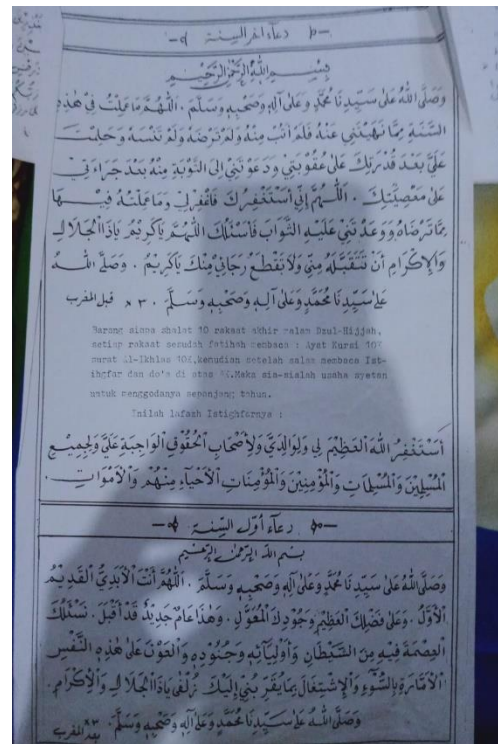 دعاء آخر السنة
بِسْمِ اللهِ الرَّحْمٰنِ الرَّحِيْمِ
وَصَلَّى اللهُ عَلَى سَيِّدِنَا مُحَمَّدٍ وَعَلَى آلِهِ وَصَحْبِهِ وَسَلَّمَ . اَللّٰهُمَّ مَا عَمِلْتُ فِي هٰذِهِ
السَّنَةِ مِمَّا نَهَيْتَنِي عَنْهُ فَلَمْ أَتُبْ مِنْهُ وَلَمْ تَرْضَهُ وَلَمْ تَنْسَهُ وَحَلِمْتَ
عَلَيَّ بَعْدَ قُدْرَتِكَ عَلَى عُقُوْبَتِي وَدَعَوْتَنِي إِلَى التَّوْبَةِ مِنْهُ بَعْدَ جَرَاءَتِي
عَلَى مَعْصِيَتِكَ . اَللّٰهُمَّ إِنِّي أَسْتَغْفِرُكَ فَاغْفِرْلِي وَمَا عَمِلْتُهُ فِيْهَا
مِمَّا تَرْضَاهُ وَوَعَدْتَنِي عَلَيْهِ الثَّوَابَ فَأَسْئَلُكَ اللّٰهُمَّ يَا كَرِيْمُ يَا ذَا الْجَلَالِ
وَالْإِكْرَامِ أَنْ تَتَقَبَّلَهُ مِنِّي وَلَا تَقْطَعْ رَجَائِي مِنْكَ يَا كَرِيْمُ . وَصَلَّى اللهُ
عَلَى سَيِّدِنَا مُحَمَّدٍ وَعَلَى آلِهِ وَصَحْبِهِ وَسَلَّمَ . ×٣ قبل المغرب
Barang siapa shalat 10 rakaat akhir malam Dzul-Hijjah,
setiap rakaat sesudah fatihah membaca : Ayat Kursi 10X
surat Al-Ikhlas 10X,kemudian setelah salam membaca Ist-
ighfar dan do'a di atas 3X.Maka sia-sialah usaha syetan
untuk menggodanya sepanjang tahun.
Inilah lafazh Istighfarnya :
أَسْتَغْفِرُ اللهَ الْعَظِيْمَ لِي وَلِوَالِدَيَّ وَلِأَصْحَابِ الْحُقُوْقِ الْوَاجِبَةِ عَلَيَّ وَلِجَمِيْعِ
الْمُسْلِمِيْنَ وَالْمُسْلِمَاتِ وَالْمُؤْمِنِيْنَ وَالْمُؤْمِنَاتِ الْأَحْيَاءِ مِنْهُمْ وَالْأَمْوَاتِ .
دعاء أوّل السنة
بِسْمِ اللهِ الرَّحْمٰنِ الرَّحِيْمِ
وَصَلَّى اللهُ عَلَى سَيِّدِنَا مُحَمَّدٍ وَعَلَى آلِهِ وَصَحْبِهِ وَسَلَّمَ . اَللّٰهُمَّ أَنْتَ الْأَبَدِيُّ الْقَدِيْمُ
الْأَوَّلُ . وَعَلَى فَضْلِكَ الْعَظِيْمِ وَجُوْدِكَ الْمُعَوَّلِ . وَهٰذَا عَامٌ جَدِيْدٌ قَدْ أَقْبَلَ . نَسْئَلُكَ
الْعِصْمَةَ فِيْهِ مِنَ الشَّيْطَانِ وَأَوْلِيَائِهِ وَجُنُوْدِهِ وَالْعَوْنَ عَلَى هٰذِهِ النَّفْسِ
الْأَمَّارَةِ بِالسُّوْءِ وَالْاِشْتِغَالِ بِمَا يُقَرِّبُنِي إِلَيْكَ زُلْفَى يَا ذَا الْجَلَالِ وَالْإِكْرَامِ .
وَصَلَّى اللهُ عَلَى سَيِّدِنَا مُحَمَّدٍ وَعَلَى آلِهِ وَصَحْبِهِ وَسَلَّمَ . ×٣ بعد المغرب